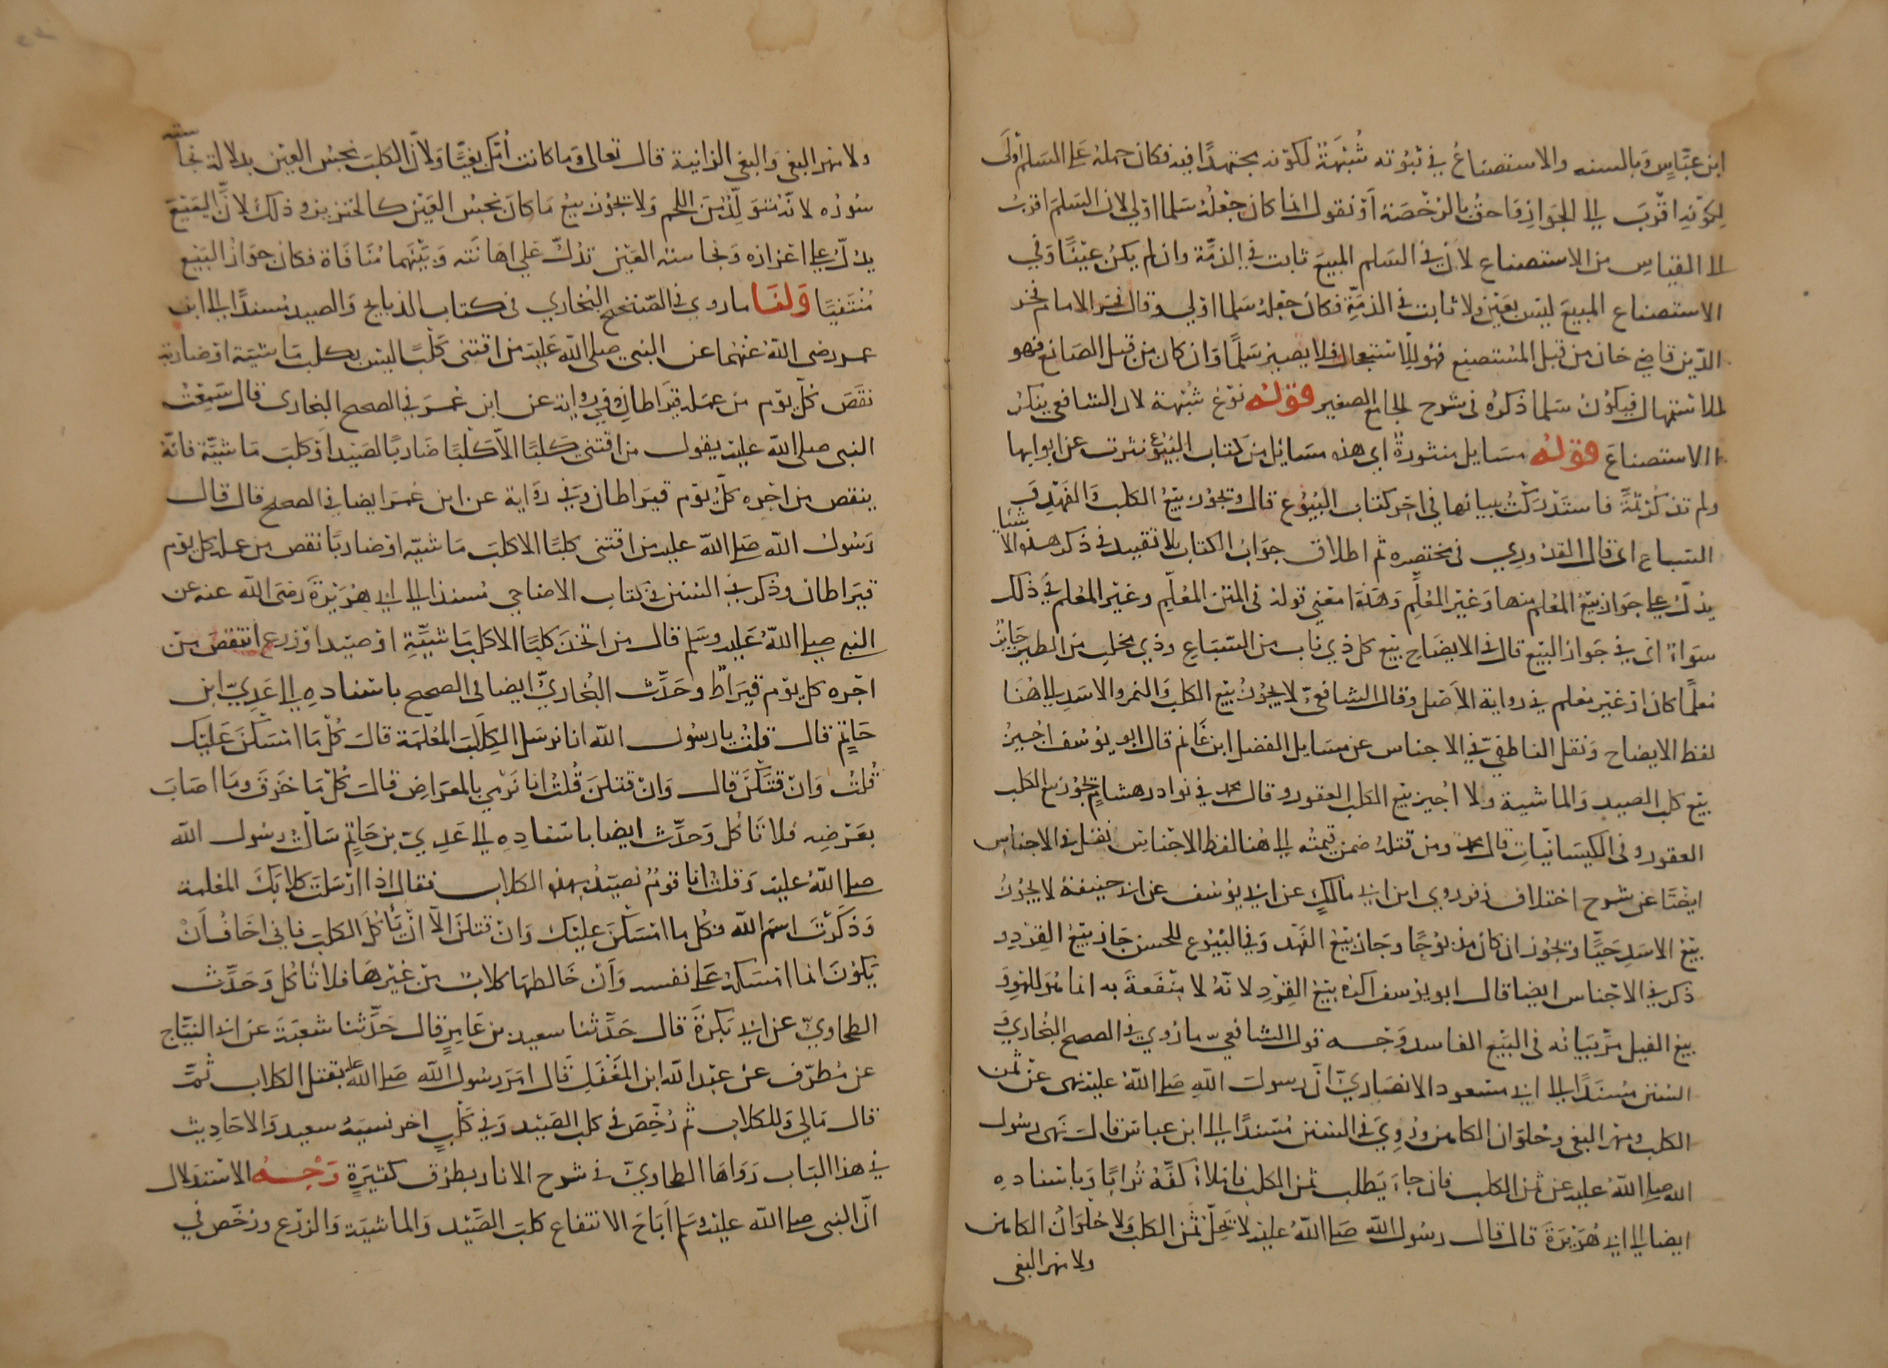 ابن عباس وبالسنه والاستصناع في ثبوته شبهة لكونه مجتهدا فيه فكان حمله على السلم اولى
لكونه اقرب الى الجواز واحق بالرخصة او نقول انما كان جعله سلما اولى لان السلم اقرب
الى القياس من الاستصناع لان في السلم المبيع ثابت في الذمة وان لم يكن عينا وفي
الاستصناع المبيع ليس بعين ولا ثابت في الذمة فكان جعله سلما اولى وقال الامام فخر
الدين قاضي خان من قبل المستصنع فهو للاستعجال فلا يصير سلما وان كان من قبل الصانع فهو
للاستمهال فيكون سلما ذكره في شرح الجامع الصغير قوله نوع شبهة لان الشافعي ينكر
الاستصناع قوله مسايل منثورة اي هذه مسايل من كتاب البيوع نثرت عن ابوابها
ولم تذكر ثمة فاستدركت ببيانها في اخر كتاب البيوع قال ويجوز بيع الكلب والفهد و
السباع اي قال القدوري في مختصره ثم اطلاق جواب الكتاب بلا تقييد في ذكر هذه الاشيا
يدل على جواز بيع المعلم منها وغير المعلم وهذا معنى قوله في المتن المعلم وغير المعلم في ذلك
سواء اي في جواز البيع قال في الايضاح بيع كل ذي ناب من السباع وذي مخلب من الطير جايز
معلما كان او غير معلم في رواية الاصل وقال الشافعي لا يجوز بيع الكلب والنمر والاسد الى هنا
لفظ الايضاح ونقل الناطفي في الاجناس عن مسايل الفضل ابن غانم قال ابو يوسف اجيز
بيع كلب الصيد والماشية ولا اجيز بيع الكلب العقور وقال محمد في نوادر هشام يجوز بيع الكلب
العقور وفي الكيسانيات قال محمد ومن قتله ضمن قيمته الى هنا لفظ الاجناس نقل في الاجناس
ايضا عن شرح اختلاف زفر روي ابن ابي مالك عن ابي يوسف عن ابي حنيفة لا يجوز
بيع الاسد حيا ويجوز ان كان مذبوحا وجاز بيع الفهد وفي البيوع للحسن جاز بيع القرد
ذكر في الاجناس ايضا قال ابو يوسف اكره بيع القرد لانه لا منفعة به انما هو للهو و
بيع الفيل مر بيانه في البيع الفاسد وجه قول الشافعي ما روي في الصحيح البخاري و
السنن مسندا الى ابي مسعود الانصاري ان رسول الله صلى الله عليه نهى عن ثمن
الكلب ومهر البغي وحلوان الكاهن وروي في السنن مسندا الى ابن عباس قال نهى رسول
الله صلى الله عليه عن ثمن الكلب فان جاء يطلب ثمن الكلب فاملأ كفه ترابا وباسناده
ايضا الى ابي هريرة قال قال رسول الله صلى الله عليه لا يحل ثمن الكلب ولا حلوان الكاهن
ولا مهر البغي
ولا مهر البغي والبغي الزانية قال تعالى وما كانت امك بغيا ولان الكلب نجس العين بدلالة نجاسته
سوره لانه متولد من اللحم ولا يجوز بيع ما كان نجس العين كالخنزير وذلك لان البيع
يدل على اعزازه ونجاسة العين تدل على اهانته وبينهما منافاة فكان جواز البيع
منتفيا ولنا ما روي في الصحيح البخاري في كتاب الذبايح والصيد مسندا الى ابن
عمر رضي الله عنهما عن النبي صلى الله عليه من اقتنى كلبا ليس بكلب ماشية او ضارية
نقص كل يوم من عمله قيراطان وفي رواية عن ابن عمر في الصحيح البخاري قال سمعت
النبي صلى الله عليه يقول من اقتنى كلبا الا كلبا ضاريا لصيد او كلب ماشية فانه
ينقص من اجره كل يوم قيراطان وفي رواية عن ابن عمر ايضا في الصحيح قال قال
رسول الله صلى الله عليه من اقتنى كلبا الا كلب ماشية او ضاريا نقص من عمله كل يوم
قيراطان وذكر في السنن في كتاب الاضاحي مسندا الى ابي هريرة رضي الله عنه عن
النبي صلى الله عليه وسلم قال من اتخذ كلبا الا كلب ماشية او صيد او زرع انتقص من
اجره كل يوم قيراط وحدث البخاري ايضا في الصحيح باسناده الى عدي ابن
حاتم قال قلت يا رسول الله انا نرسل الكلاب المعلمة قال كل ما امسكن عليك
قلت وان قتلن قال وان قتلن قلت انا نرمي بالمعراض قال كل ما خزق وما اصاب
بعرضه فلا تأكل وحدث ايضا باسناده الى عدي بن حاتم سالت رسول الله
صلى الله عليه وقلت انا قوم نصيد بهذه الكلاب فقال اذا ارسلت كلابك المعلمة
وذكرت اسم الله فكل ما امسكن عليك وان قتلن الا ان يأكل الكلب فاني اخاف أن
يكون انما امسكه على نفسه وأن خالطها كلاب من غيرها فلا تأكل وحدث
الطحاوي عن ابي بكرة قال حدثنا سعيد بن عامر قال حدثنا شعبة عن ابي التياح
عن مطرف عن عبد الله ابن المغفل قال امر رسول الله صلى الله عليه بقتل الكلاب ثم
قال مالي وللكلاب ثم رخص في كلب الصيد وفي كلب اخر نسيه سعيد والاحاديث
في هذا الباب رواها الطحاوي في شرح الاثار بطرق كثيرة وجه الاستدلال
ان النبي صلى الله عليه وسلم أباح الانتفاع كلب الصيد والماشية والزرع ورخص في